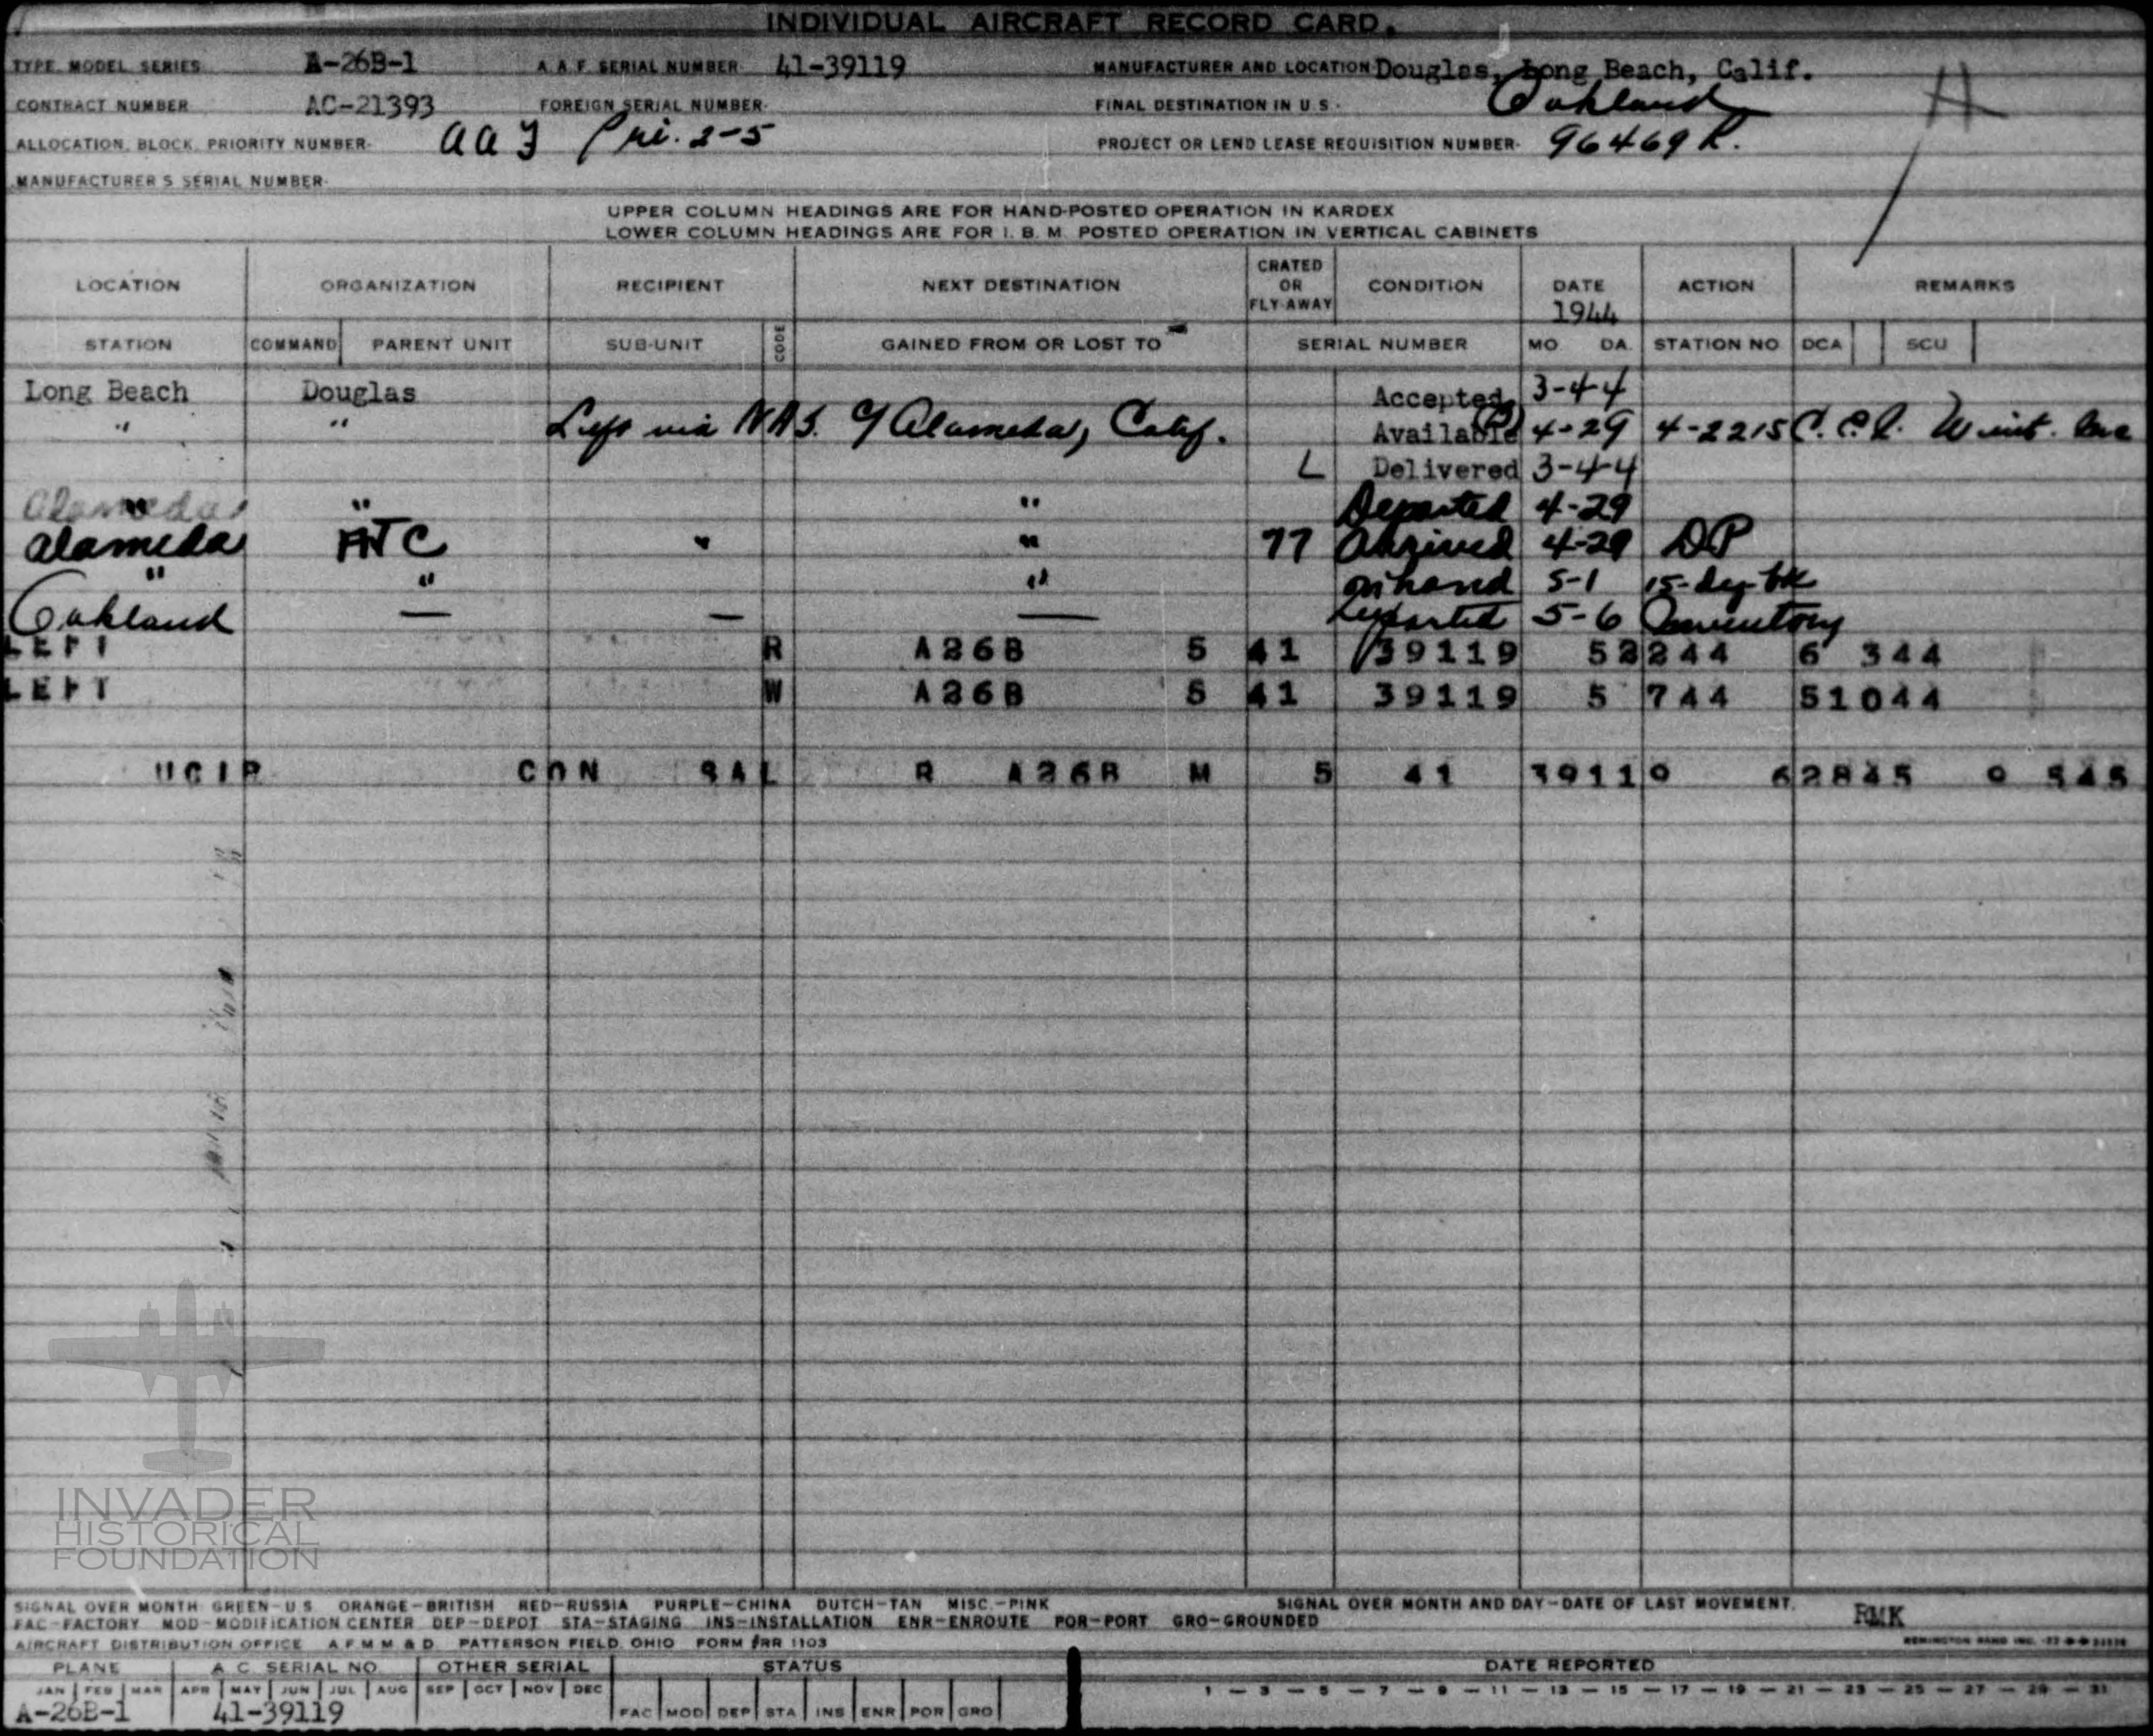 INDIVIDUAL AIRCRAFT RECORD CARD.
TYPE MODEL SERIES A-26B-1 A.A.F. SERIAL NUMBER 41-39119 MANUFACTURER AND LOCATION Douglas, Long Beach, Calif.
CONTRACT NUMBER AC-21393 FOREIGN SERIAL NUMBER- FINAL DESTINATION IN U.S. Oakland
ALLOCATION. BLOCK. PRIORITY NUMBER- aaf Pri. 2-5 PROJECT OR LEND LEASE REQUISITION NUMBER- 96469R.
MANUFACTURER'S SERIAL NUMBER-
UPPER COLUMN HEADINGS ARE FOR HAND-POSTED OPERATION IN KARDEX
LOWER COLUMN HEADINGS ARE FOR I. B. M. POSTED OPERATION IN VERTICAL CABINETS
LOCATION ORGANIZATION RECIPIENT NEXT DESTINATION CRATED OR FLY-AWAY CONDITION DATE 1944 ACTION REMARKS
STATION COMMAND PARENT UNIT SUB-UNIT CODE GAINED FROM OR LOST TO SERIAL NUMBER MO DA. STATION NO DCA SCU
Long Beach Douglas Accepted 3-4-4
" " Left via N.A.S. Alameda, Calif. Available 4-29 4-2215
L Delivered 3-4-4
Alameda " " " Departed 4-29
Alameda ATC " " 77 Arrived 4-29 DP
" " " on hand 5-1 15-day
Oakland — — — Departed 5-6 Inventory
LEFT R A26B 5 41 39119 52244 6 344
LEFT W A26B 5 41 39119 5 744 51044
UCIR CON SAL R A26B M 5 41 39119 62845 545
INVADER
HISTORICAL
FOUNDATION
SIGNAL OVER MONTH GREEN-U.S ORANGE-BRITISH RED-RUSSIA PURPLE-CHINA DUTCH-TAN MISC.-PINK SIGNAL OVER MONTH AND DAY-DATE OF LAST MOVEMENT.
FAC-FACTORY MOD-MODIFICATION CENTER DEP-DEPOT STA-STAGING INS-INSTALLATION ENR-ENROUTE POR-PORT GRO-GROUNDED RMK
AIRCRAFT DISTRIBUTION OFFICE A.F.M.M & D. PATTERSON FIELD, OHIO FORM #RR 1103
PLANE A.C. SERIAL NO. OTHER SERIAL STATUS DATE REPORTED
JAN FEB MAR APR MAY JUN JUL AUG SEP OCT NOV DEC 1 — 3 — 5 — 7 — 9 — 11 — 13 — 15 — 17 — 19 — 21 — 23 — 25 — 27 — 29 — 31
A-26B-1 41-39119 FAC MOD DEP STA INS ENR POR GRO